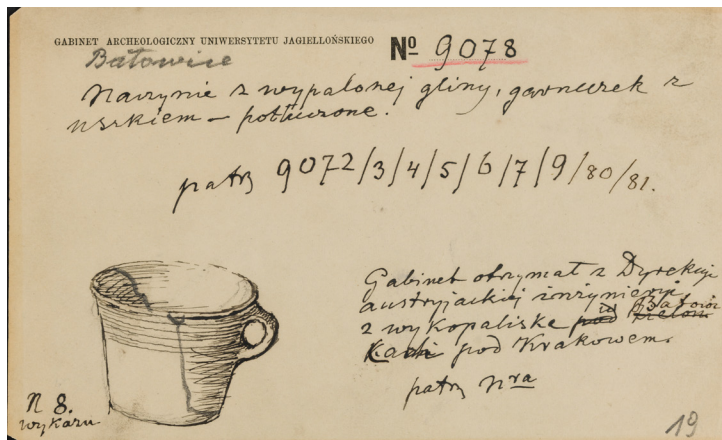 GABINET ARCHEOLOGICZNY UNIWERSYTETU JAGIELLOŃSKIEGO
No 9078
Batowice
Naczynie z wypalonej gliny, garnuszek z
uszkiem – potłuczone.
patrz 9072/3/4/5/6/7/9/80/81.
Gabinet otrzymał z Dyrekcyi
austryjackiej inżynieryi,
z wykopaliska pod w Batowi
pod Krakowem.
patrz Nra
N 8.
wykazu
19